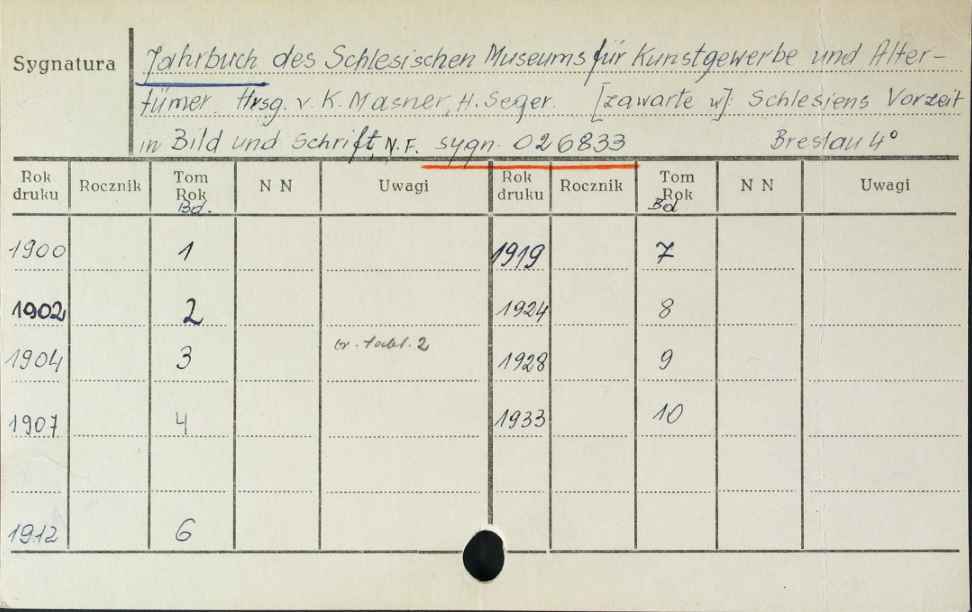 Sygnatura
Jahrbuch des Schlesischen Museums für Kunstgewerbe und Alter-
tümer. Hrsg. v. K. Masner, H. Seger. [zawarte w]: Schlesiens Vorzeit
in Bild und Schrift, N.F. sygn. 026833 Breslau 4°
Rok druku Rocznik Tom Rok Bd. N N Uwagi Rok druku Rocznik Tom Rok Bd N N Uwagi
1900 1 1919 7
1902 2 1924 8
1904 3 tabl. 2 1928 9
1907 4 1933 10
1912 6